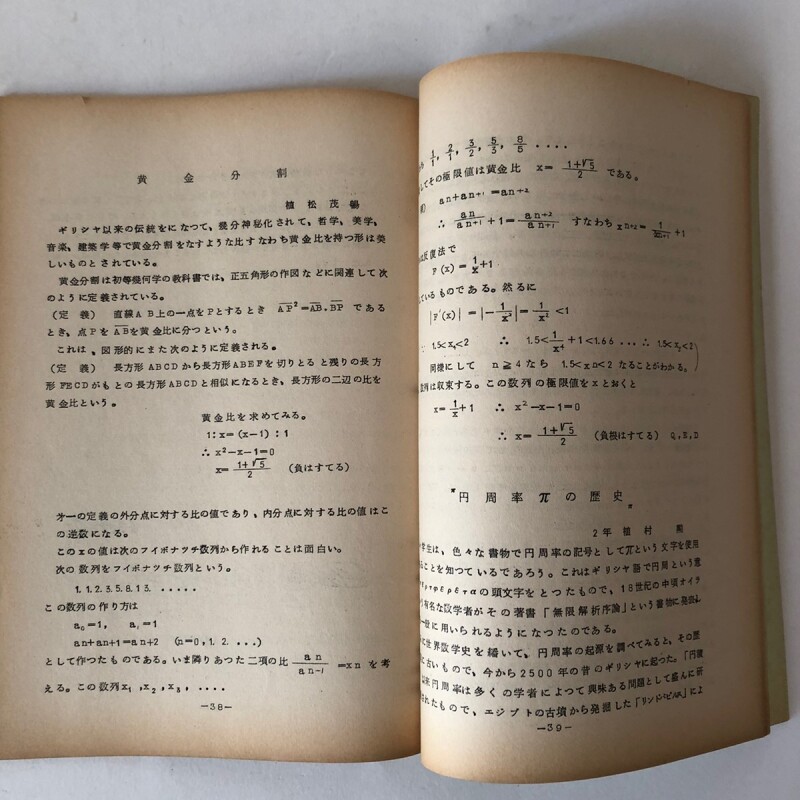 黄金分割
植松茂暢
ギリシヤ以来の伝統をになつて、幾分神秘化されて、哲学、美学、
音楽、建築学等で黄金分割をなすような比すなわち黄金比を持つ形は美
しいものとされている。
黄金分割は初等幾何学の教科書では、正五角形の作図などに関連して次
のように定義されている。
(定義) 直線AB上の一点をPとするとき AP²=AB.BP である
とき、点PをABを黄金比に分つという。
これは、図形的にまた次のように定義される。
(定義) 長方形ABCDから長方形ABEFを切りとると残りの長方
形FECDがもとの長方形ABCDと相似になるとき、長方形の二辺の比を
黄金比という。
黄金比を求めてみる。
1:x=(x-1):1
∴x²-x-1=0
x=(1+√5)/2 (負はすてる)
才一の定義の外分点に対する比の値であり、内分点に対する比の値はこ
の逆数になる。
このxの値は次のフイボナツチ数列から作れることは面白い。
次の数列をフイボナツチ数列という。
1.1.2.3.5.8.13.....
この数列の作り方は
a₀=1, a₁=1
an+an+1=an+2 (n=0,1.2....)
として作つたものである。いま隣りあつた二項の比 an/an-1 =xn を考
える。この数列x₁,x₂,x₃,....
-38-
1/1, 2/1, 3/2, 5/3, 8/5 ....
してその極限値は黄金比 x=(1+√5)/2 である。
an+an+1=an+2
∴ an/an+1 +1= an+2/an+1 すなわち xn+2=1/xn+1 +1
は反復法で
F(x)=1/x+1
ているものである。然るに
|F'(x)|=|-1/x²|=1/x²<1
1.5<x₄<2 ∴ 1.5<1/x⁴+1<1.66...∴ 1.5<x₅<2
同様にして n≧4 なら 1.5<xn<2 なることがわかる。
数列は収束する。この数列の極限値をxとおくと
x=1/x+1 ∴ x²-x-1=0
∴ x=(1+√5)/2 (負根はすてる) Q,E,D
"円周率πの歴史"
2年 植村 勲
学生は、色々な書物で円周率の記号としてπという文字を使用
ることを知つているであろう。これはギリシヤ語で円周という意
の頭文字をとつたもので、18世紀の中頃オイラ
有名な数学者がその著書「無限解析序論」という書物に発表し
一般に用いられるようになつたのである。
に世界数学史を繙いて、円周率の起原を調べてみると、その歴
に古いもので、今から2500年の昔のギリシヤに起つた。「円積
以来円周率は多くの学者によつて興味ある問題として盛んに研
されたもので、エジプトの古墳から発掘した「リンド・パピルス」によ
-39-